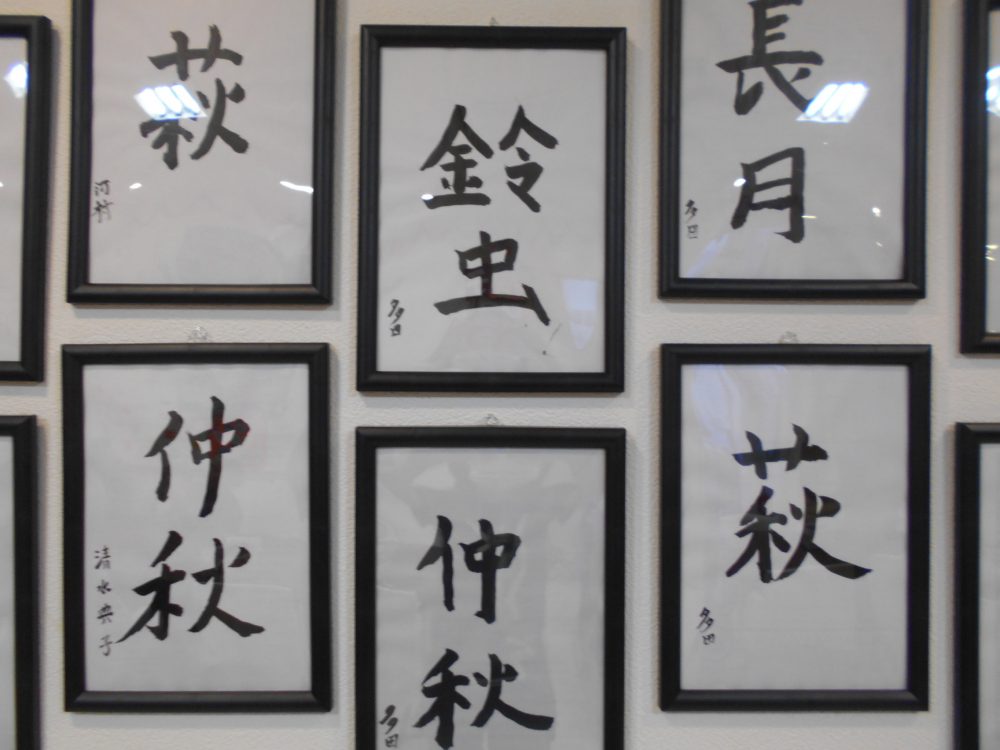 萩
河村
鈴虫
多田
長月
多田
仲秋
清水典子
仲秋
多田
萩
多田